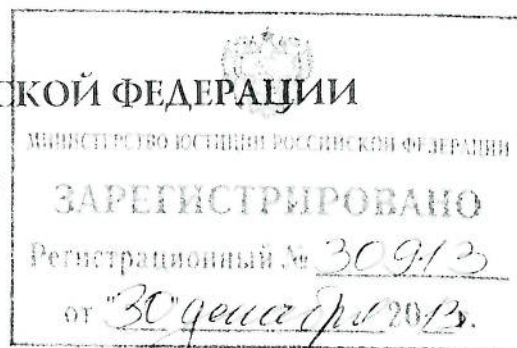 СКОЙ ФЕДЕРАЦИИ
МИНИСТЕРСТВО ЮСТИЦИИ РОССИЙСКОЙ ФЕДЕРАЦИИ
ЗАРЕГИСТРИРОВАНО
Регистрационный № 30913
от "30" декабря 2013г.